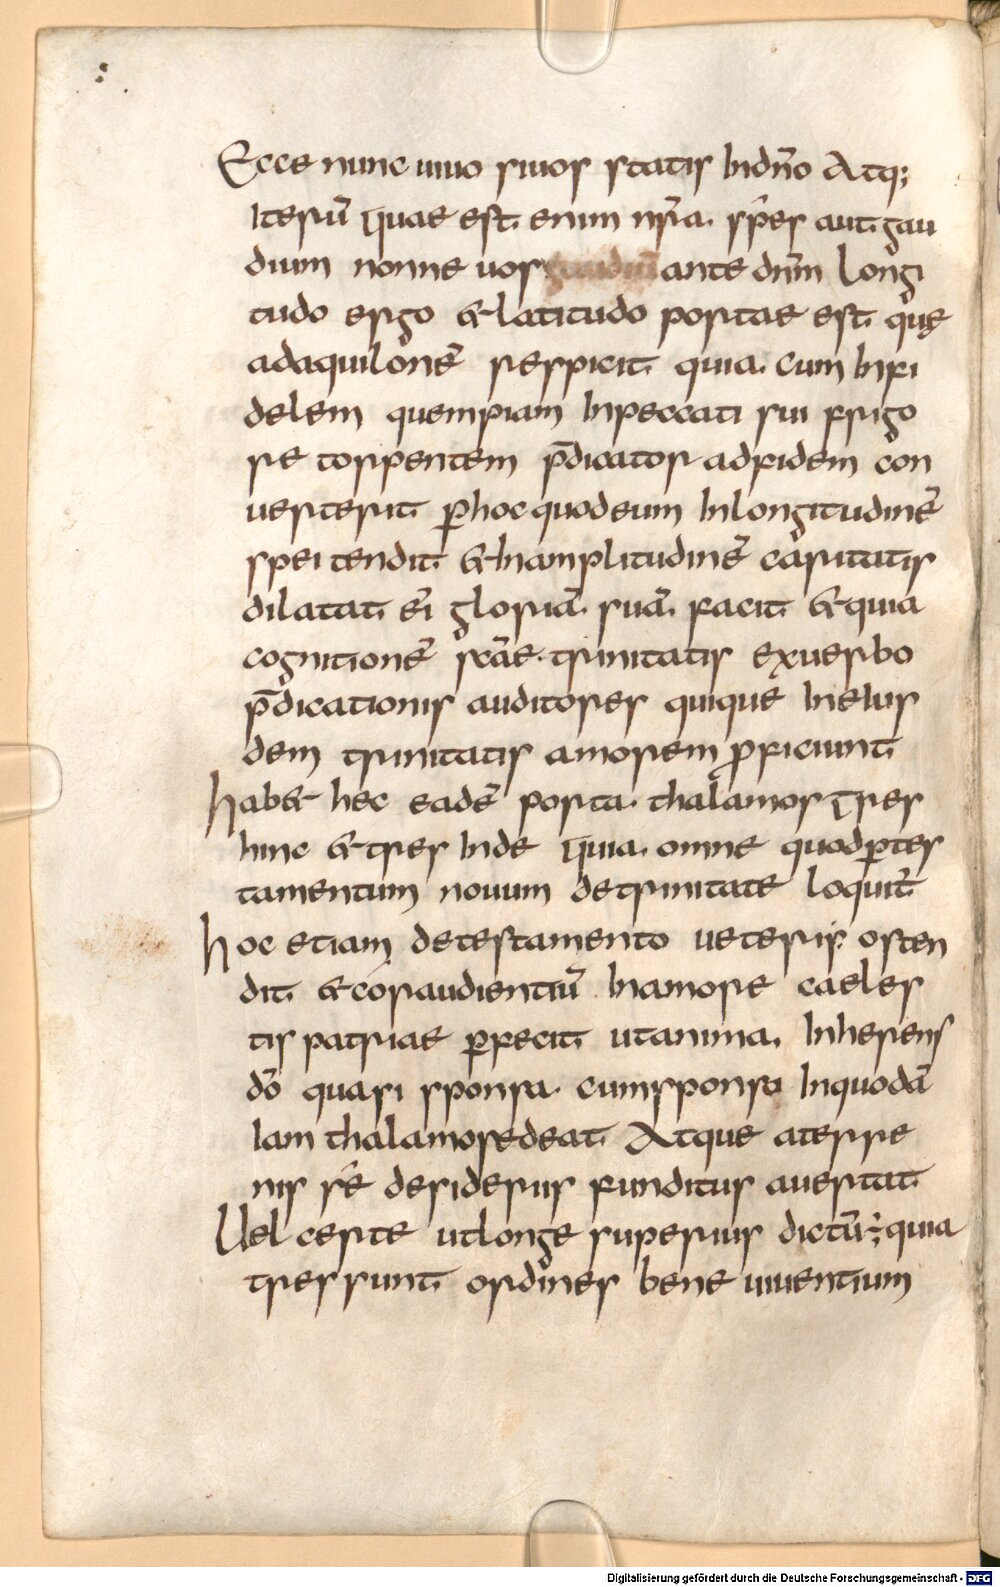 Ecce nunc uiuo siuos statis Indño Atq;
Iterū quae est. enim nr̄a. sp̄es aut. gau
dium nonne uos ante dn̄m Longi
tudo ergo & latitudo portae est. quę
adaquilonē respicit. quia. cum Infi
delem quempiam Inpeccati sui frigo
re torpentem p̄dicator adfidem con
uerterit. ꝑhoc quodeum Inlongitudinē
spei tendit. & Inamplitudinē caritatis
dilatat. ēi gloriā. suā. facit. & quia
cognitionē scāe. trinitatis exuerbo
p̄dicationis auditores quique Ineius
dem trinitatis amorem ꝓficiunt.
hab& hec eadē porta. thalamos tres
hinc & tres Inde quia. omne quodꝑtes
tamentum nouum detrinitate loquit̄
hoc etiam detestamento ueteris osten
dit. & coraudientiū Inamore caeles
tis patriae ꝑfecit. utanima. Inherens
dō quasi sponsa. cumsponso Inquodā
Iam thalamosedeat. Atque aterre
nis sē desideriis funditus auertat.
Uel certe utlonge superius dictū ÷ quia
tres sunt. ordines bene uiuentium
Digitalisierung gefördert durch die Deutsche Forschungsgemeinschaft - DFG